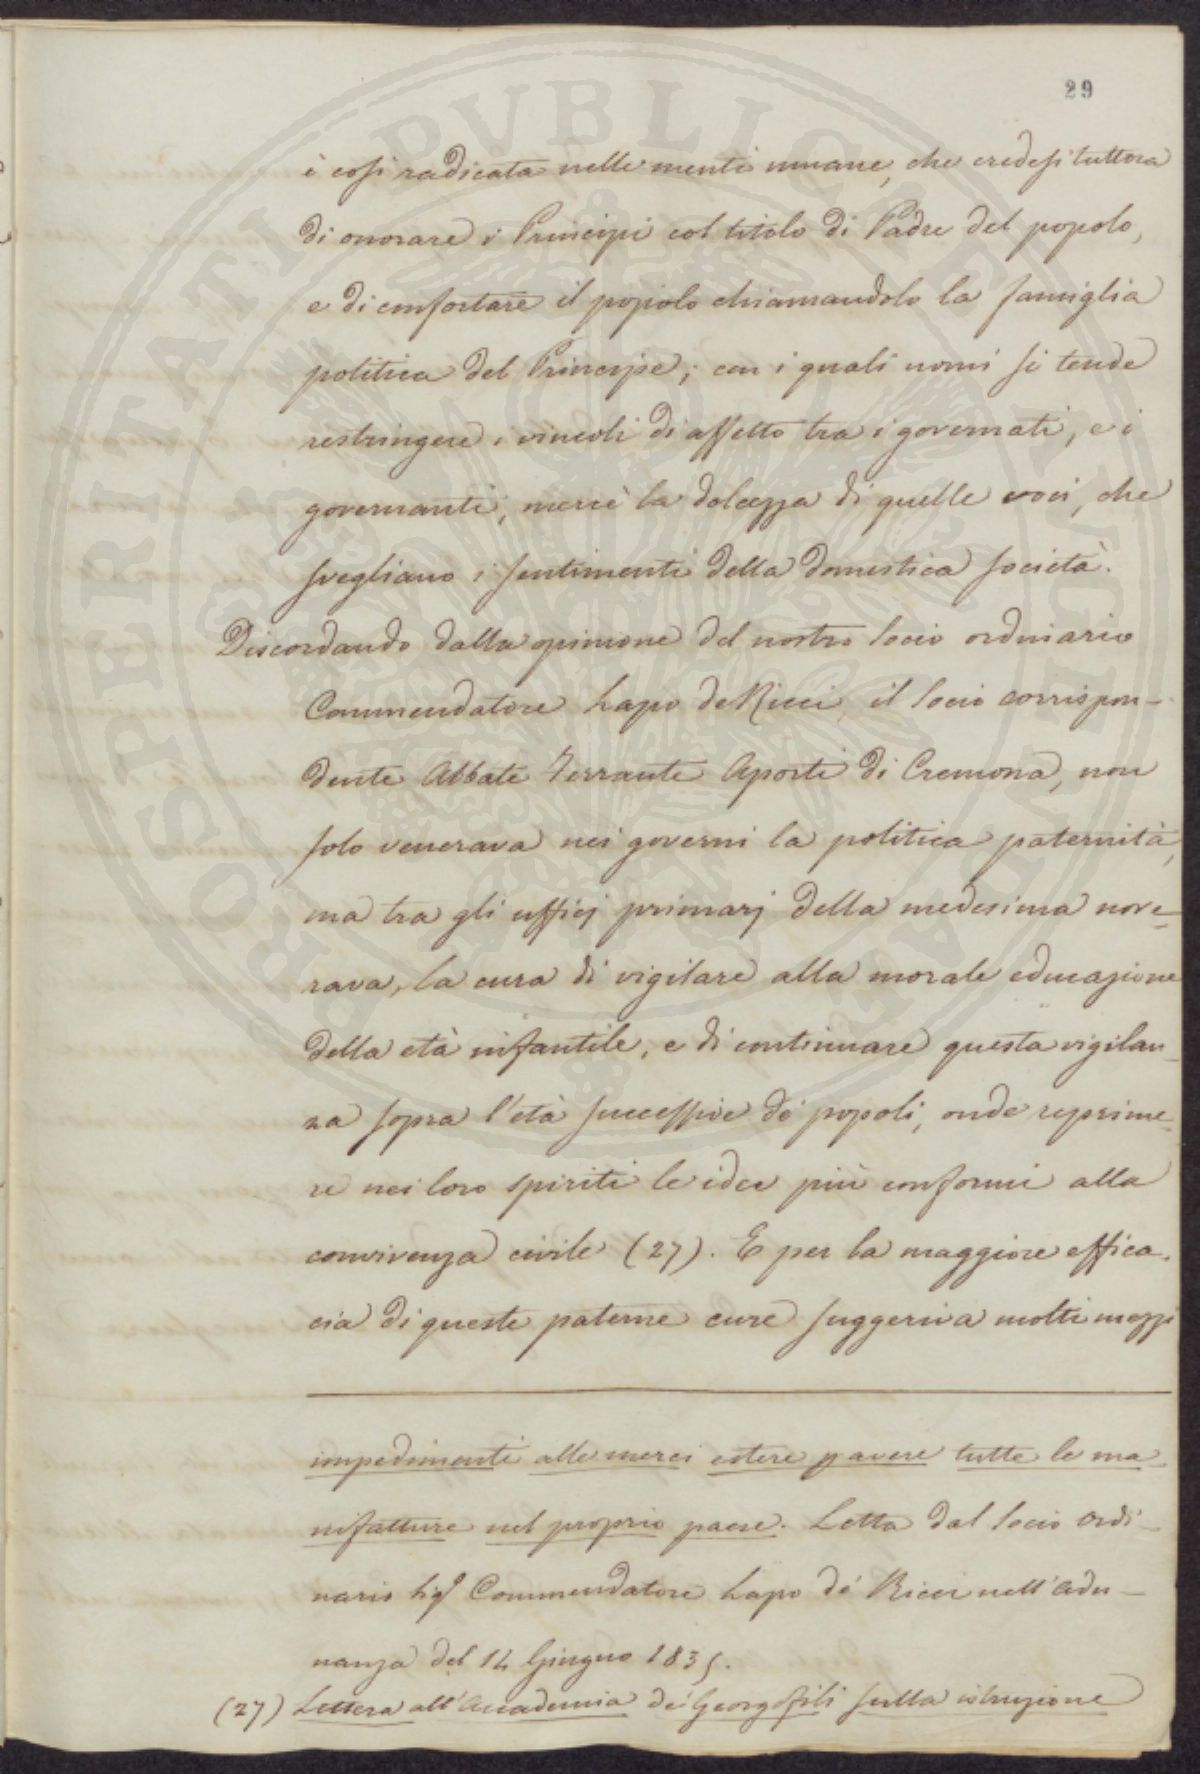 29
è così radicata nelle menti umane, che credesi tuttora
di onorare i Principi col titolo di Padre del popolo,
e di confortare il popolo chiamandolo la famiglia
politica del Principe; con i quali nomi si tende
restringere i vincoli di affetto tra i governati, e i
governanti, mercè la dolcezza di quelle voci, che
svegliano i sentimenti della domestica società.
Discordando dalla opinione del nostro socio ordinario
Commendatore Lapo de Ricci, il socio corrispon-
dente Abbate Ferrante Aporti di Cremona, non
solo venerava nei governi la politica paternità,
ma tra gli ufficj primarj della medesima nove-
rava, la cura di vigilare alla morale educazione
della età infantile, e di continuare questa vigilan-
za sopra l'età successive de' popoli, onde reprime-
re nei loro spiriti le idee più conformi alla
convivenza civile (27). E per la maggiore effica-
cia di queste paterne cure suggeriva molti mezzi
impedimenti alle merci estere p avere tutte le ma-
nifatture nel proprio paese. Letta dal socio ordi-
nario Sig.r Commendatore Lapo de' Ricci nell'adu-
nanza del 14 Giugno 1835.
(27) Lettera all'Accademia de' Georgofili sulla istruzione
PROSPERITATI PVBLICAE AVGENDAE